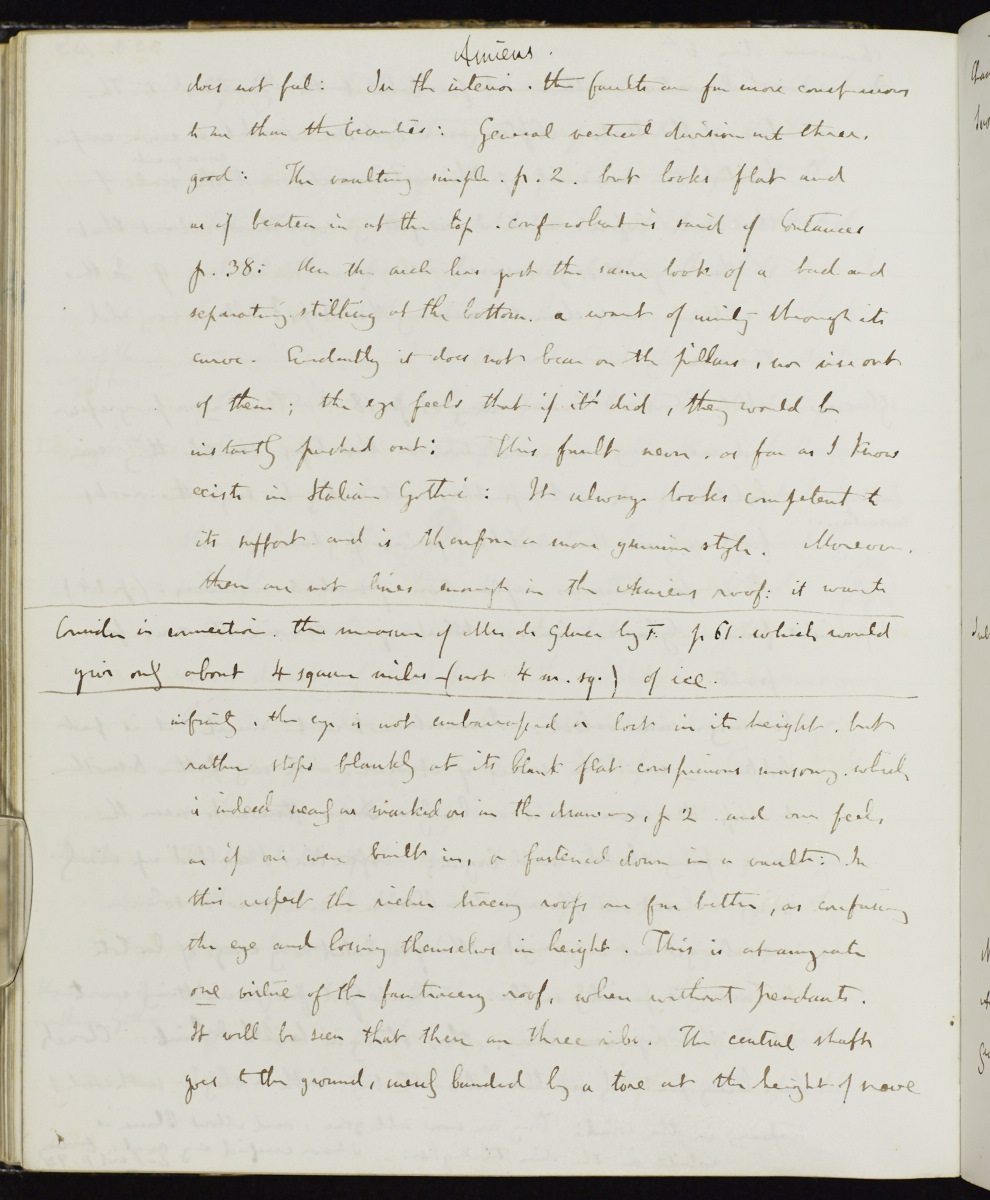 Amiens.
does not feel: In the interior. the faults are far more conspicuous
to me than the beauties: General vertical division into three.
good: The vaulting simple. p. 2. but looks flat and
as if beaten in at the top. conf what is said of Coutances
p. 38: then the arch has just the same look of a bad and
separating stilting at the bottom. a want of unity through its
curve. Evidently it does not bear on the pillars, nor rise out
of them; the eye feels that if it did, they would be
instantly pushed out: This fault never, as far as I know
exists in Italian Gothic: It always looks competent to
its support and is therefore a more genuine style. Moreover.
there are not lines enough in the Amiens roof: it wants
Consider in connection. the measure of Mer de Glace by F. p 61. which would
give only about 4 square miles (not 4 m. sq.) of ice.
infinity, the eye is not embarrassed or lost in its height, but
rather stops blankly at its blank flat conspicuous masonry. which
is indeed nearly as marked as in the drawing, p 2 and one feels,
as if one were built in, or fastened down in a vault: In
this respect the richer tracery roofs are far better, as confusing
the eye and losing themselves in height. This is at any rate
one virtue of the fan tracery roof, when without pendants.
It will be seen that there are three ribs. The central shaft
goes to the ground, merely banded by a tore at the height of nave